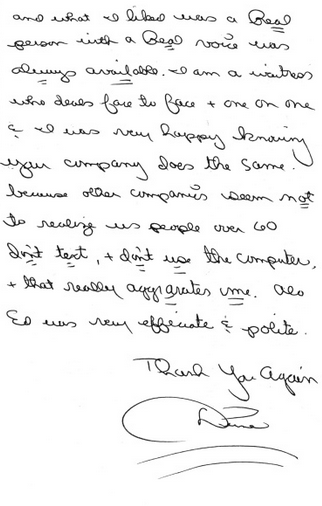 and what I liked was a Real
person with a Real voice was
always available. I am a waitress
who deals face to face + one on one
& I was very happy knowing
your company does the same.
because other companies seem not
to realize us people over 60
don't text, + don't use the computer,
+ that really aggrates me. Also
Ed was very effeciate & polite.
Thank You Again